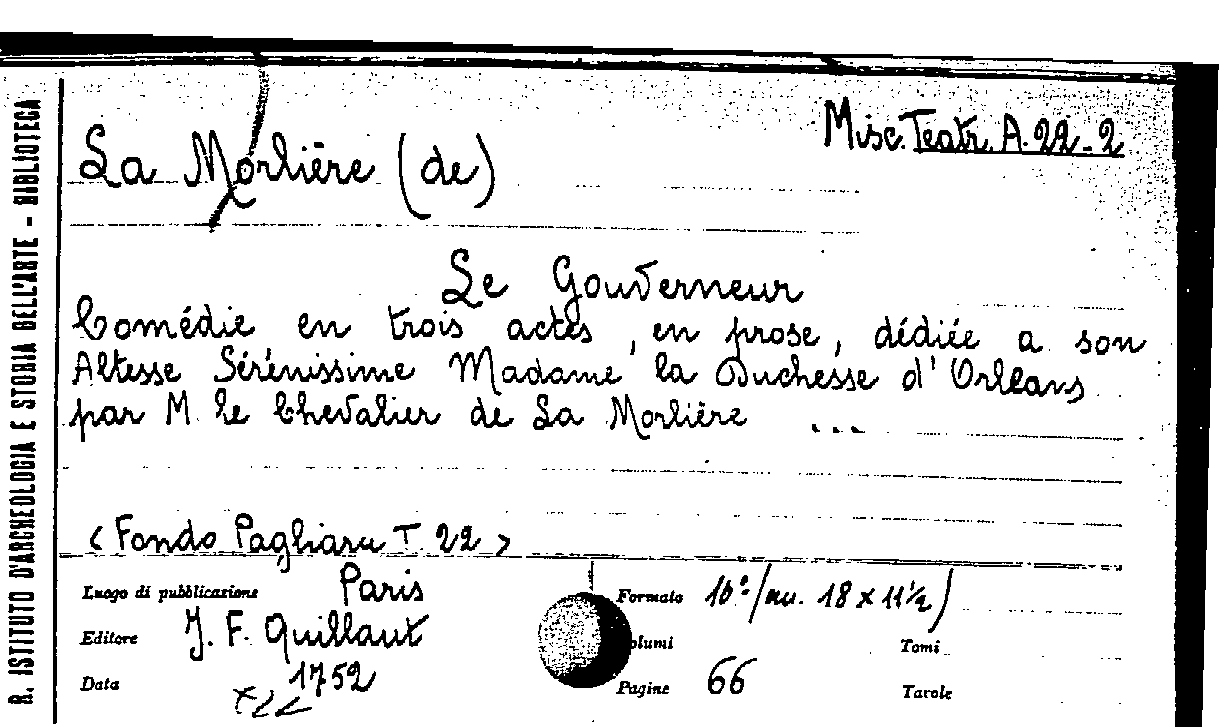 R. ISTITUTO D'ARCHEOLOGIA E STORIA DELL'ARTE - BIBLIOTECA
Misc. Teatr. A. 22-2
La Morlière (de)
Le Gouverneur
Comédie en trois actes, en prose, dédiée a son
Altesse Sérénissime Madame la Duchesse d'Orléans
par M. le Chevalier de La Morlière ...
< Fondo Pagliaru T. 22 >
Luogo di pubblicazione Paris
Formato 16º/(mu. 18 x 11½)
Editore J. F. Quillaut
olumi
Tomi
Data 1752
Pagine 66
Tavole